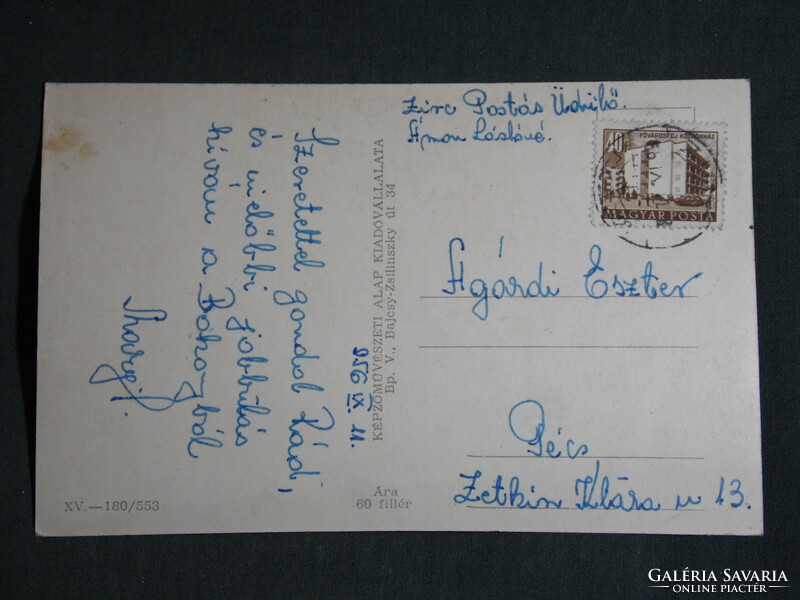 Zirc Postás Üdülő.
Ámon Lászlóné.
Szeretettel gondol Rád,
és mielőbbi jobbulás
kíván a Bakonyból
956 IX. 11.
KÉPZŐMŰVÉSZETI ALAP KIADÓVÁLLALATA
Bp. V., Bajcsy-Zsilinszky út 34
40
FŐVÁROSI ÚJ KÖZKÓRHÁZ
MAGYAR POSTA
Agárdi Eszter
Pécs
Zetkin Klára u 13.
Ára
60 fillér
XV.—180/553
GALÉRIA SAVARIA
ONLINE PIACTÉR